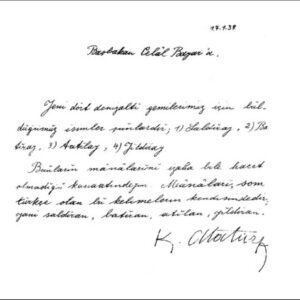 17.1.38
Başbakan Celâl Bayar'a.
Yeni dört denizaltı gemilerimiz için bul-
duğumuz isimler şunlardır; 1) Saldıray, 2) Ba
tıray, 3) Atılay, 4) Yıldıray
Bunların mânâlarını izaha bile hacet
olmadığı kanaatındayım Mânâları, som
türkçe olan bu kelimelerin kendisindedir,
yani saldıran, batıran, atılan, yıldıran.
K. Atatürk